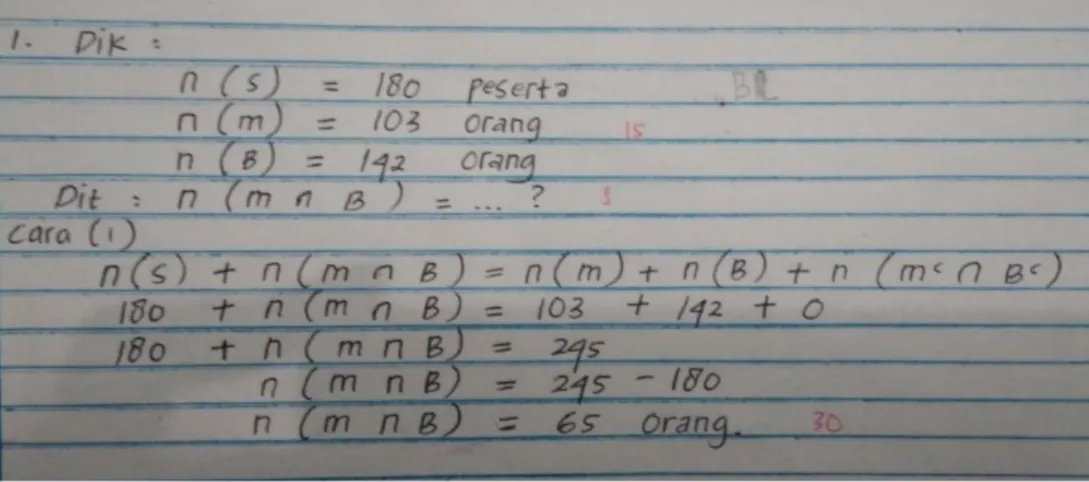 1. Dik :
n (s) = 180 peserta
n (m) = 103 orang 15
n (B) = 142 orang
Dit : n (m ∩ B) = ... ?
Cara (1)
n(s) + n(m ∩ B) = n(m) + n(B) + n (mᶜ ∩ Bᶜ)
180 + n (m ∩ B) = 103 + 142 + 0
180 + n (m ∩ B) = 245
n (m ∩ B) = 245 - 180
n (m ∩ B) = 65 orang. 30